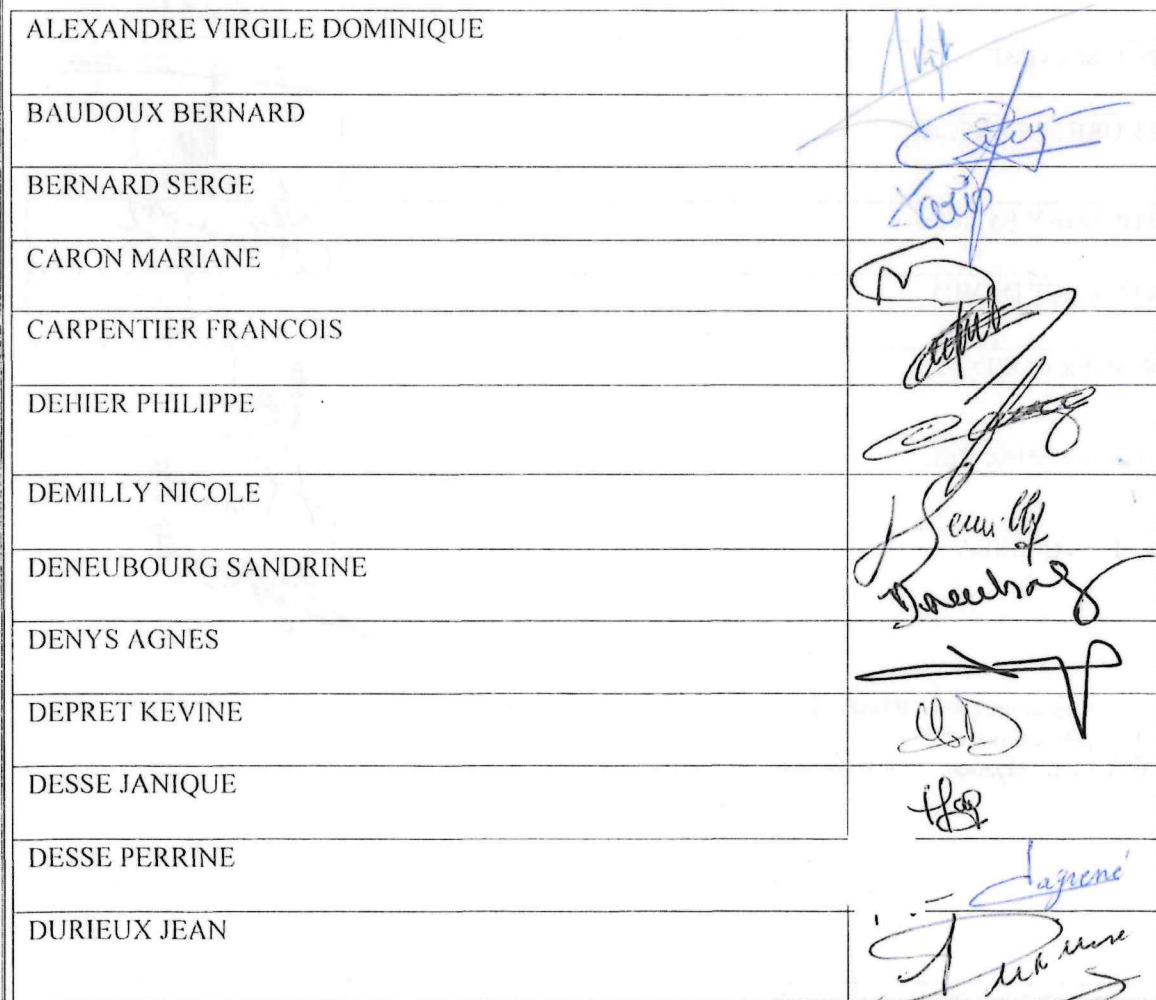 ALEXANDRE VIRGILE DOMINIQUE
BAUDOUX BERNARD
BERNARD SERGE
CARON MARIANE
CARPENTIER FRANCOIS
DEHIER PHILIPPE
DEMILLY NICOLE
Demilly
DENEUBOURG SANDRINE
Deneubourg
DENYS AGNES
DEPRET KEVINE
DESSE JANIQUE
DESSE PERRINE
Lagrené
DURIEUX JEAN